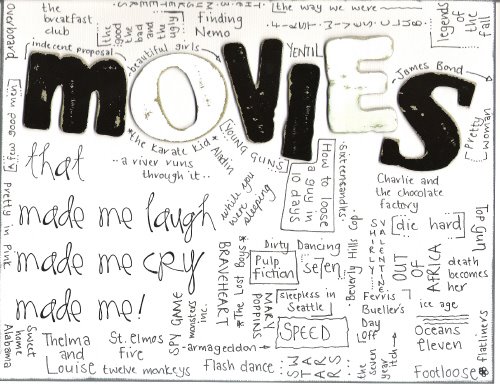 overboard
the
breakfast
club
the
good
the
bad
and
the
ugly
finding
Nemo
the way we were
legends of
the
fall
indecent proposal
beautiful girls
YENTIL
James Bond
MOVIES
Pretty
woman
*the karate kid*
YOUNG GUNS
Aladin
..a river runs
through it..
that
while you
were
sleeping
How to loose
a guy in
10 days
sixteencandles
Charlie and
the chocolate
factory
Pretty in Pink
made me laugh
made me cry
made me!
BRAVEHEART
*The Lost Boys*
Dirty Dancing
Pulp
fiction
se7en
-Beverly Hills Cop-
SHIRLEY
VALENTINE
die hard
Top Gun
OUT
OF
AFRICA
death
becomes
her
SPY GAME
monsters
inc.
MARY
POPPINS
sleepless in
Seattle
SPEED
Ferris
Bueller's
Day
Off
ice age
Oceans
Eleven
*flatliners
Sweet
home
Alabama
Thelma
and
Louise
St. elmos
fire
twelve monkeys
-armageddon-
flash dance
STAR
WARS
the
seven
year
itch
footloose